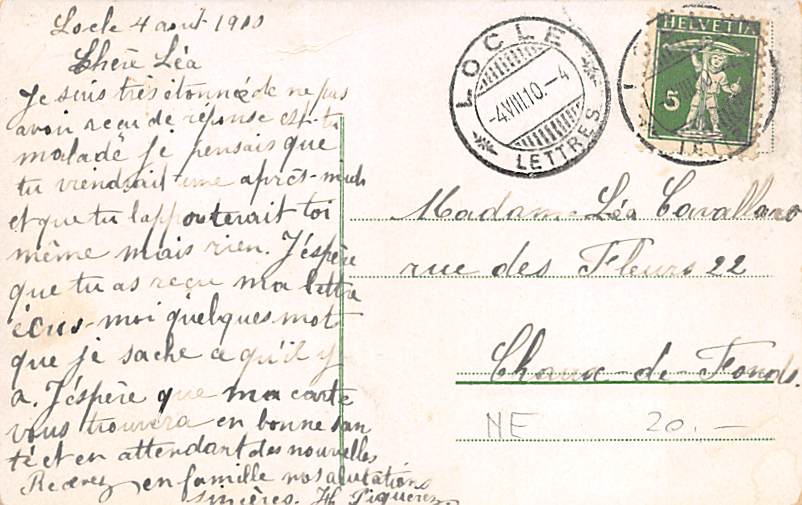 Locle 4 août 1910
Chère Léa
Je suis très étonnée de ne pas
avoir reçu de réponse est-tu
malade je pensais que
tu viendrait une après-midi
et que tu l'apporterait toi
même mais rien. J'éspère
que tu as reçu ma lettre
écris-moi quelques mot
que je sache ce qu'il y
a. J'éspère que ma carte
vous trouvera en bonne san
té et en attendant des nouvelles
Recevez en famille nos salutations
sincères.
LOCLE
-4.VIII.10.-4
LETTRES
HELVETIA
5
Madame Léa Cavallaro
rue des Fleurs 22
Chaux-de-Fonds.
NE 20.-